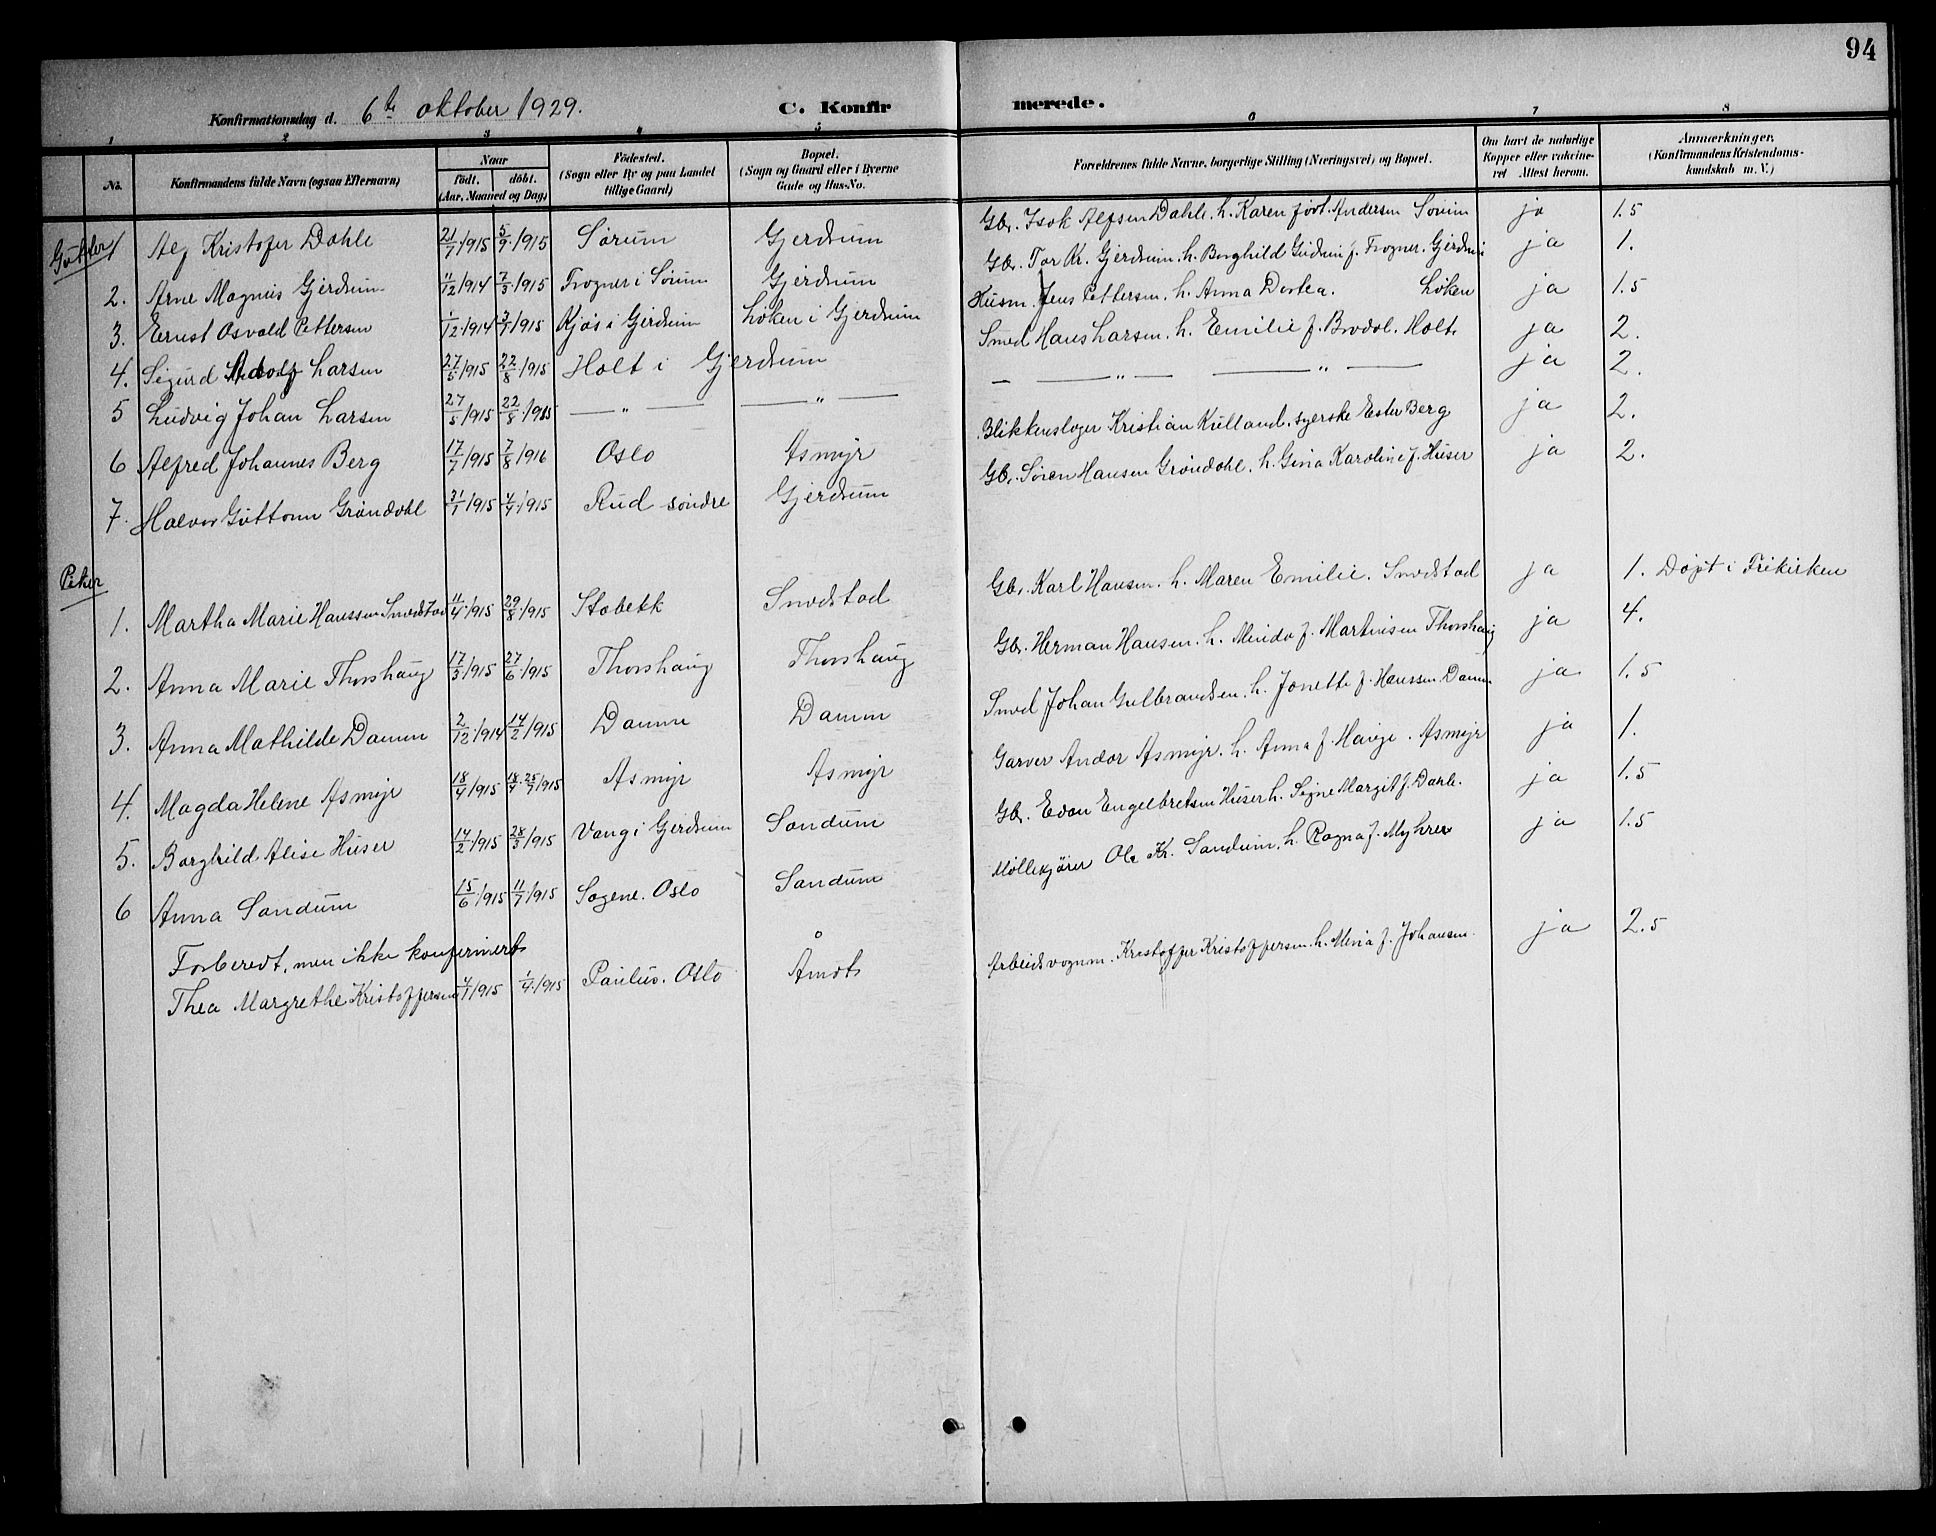 94
Konfirmationsdag d. 6te oktober 1929. C. Konfirmerede.
1 2 3 4 5 6 7 8
No. Konfirmandens fulde Navn (ogsaa Efternavn) Naar födt. döbt. (Aar, Maaned og Dag) Födested. (Sogn eller By og paa Landet tillige Gaard) Bopæl. (Sogn og Gaard eller i Byerne Gade og Hus-No. Forældrenes fulde Navne, borgerlige Stilling (Næringsvei) og Bopæl. Om havt de naturlige Kopper eller vaccineret Attest herom. Anmærkninger. (Konfirmandens Kristendomskundskab m. V.)
Gutter 1 Alf Kristofer Dahle 21/7 1915 5/9 1915 Sørum Gjerdrum Gbr. Isak Alfsen Dahle. h. Karen født Andersen Sørum ja 1.5
2. Arne Magnus Gjerdrum 11/12 1914 7/3 1915 Frogner i Sørum Gjerdrum Gbr. Tor Kr. Gjerdrum. h. Borghild Gudrun f. Frogner. Gjerdrum ja 1.
3. Ernst Osvald Pettersen 1/12 1914 1915 Kjøs i Gjerdrum Løken i Gjerdrum Husm. Jens Pettersen. h. Anna Dortea. Løken ja 1.5
4. Sigurd Adolf Larsen 27/5 1915 22/8 1915 Holt i Gjerdrum Smed Hans Larsen. h. Emilie f. Brodal. Holt. ja 2.
5 Ludvig Johan Larsen 27/5 1915 22/8 1915 — " — — " — — — " — — " — ja 2.
6 Alfred Johannes Berg 17/7 1915 7/8 1916 Oslo Asmyr Blikkenslager Kristian Kulland. syerske Ester Berg ja 2.
7. Halvor Guttorm Grøndahl 31/1 1915 4/4 1915 Rud søndre Gjerdrum Gbr. Søren Hansen Grøndahl. h. Gina Karoline f. Huser ja 2.
Piker
1. Martha Marie Hanssen Smedstad 11/4 1915 29/8 1915 Stabekk Smedstad Gbr. Karl Hansen. h. Maren Emilie. Smedstad ja 1. Døpt i Frikirken
2. Anna Marie Thorshaug 17/3 1915 27/6 1915 Thorshaug Thorshaug Gbr. Herman Hansen. h. Minda f. Martinsen Thorshaug ja 4.
3. Anna Mathilde Damm 2/12 1914 14/2 1915 Damm Damm Smed Johan Gulbrandsen. h. Jonette f. Hanssen Damm ja 1.5
4. Magda Helene Asmyr 18/4 1915 18/4 25/7 1915 Asmyr Asmyr Garver Andor Asmyr. h. Anna f. Hauge. Asmyr ja 1.
5. Borghild Alise Huser 14/2 1915 28/3 1915 Vang i Gjerdrum Sandum Gbr. Edvan Engelbretsen Huser h. Signe Margit f. Dahle. ja 1.5
6 Anna Sandum 15/6 1915 11/7 1915 Sagene. Oslo Sandum Møllekjører Ole Kr. Sandum. h. Ragna f. Myhrer ja 1.5
Forberedt, men ikke konfirmert
Thea Margrethe Kristoffersen 1915 1/4 1915 Paulus. Oslo Åmot Arbeidsvognm. Kristoffer Kristoffersen. h. Mina f. Johansen. ja 2.5